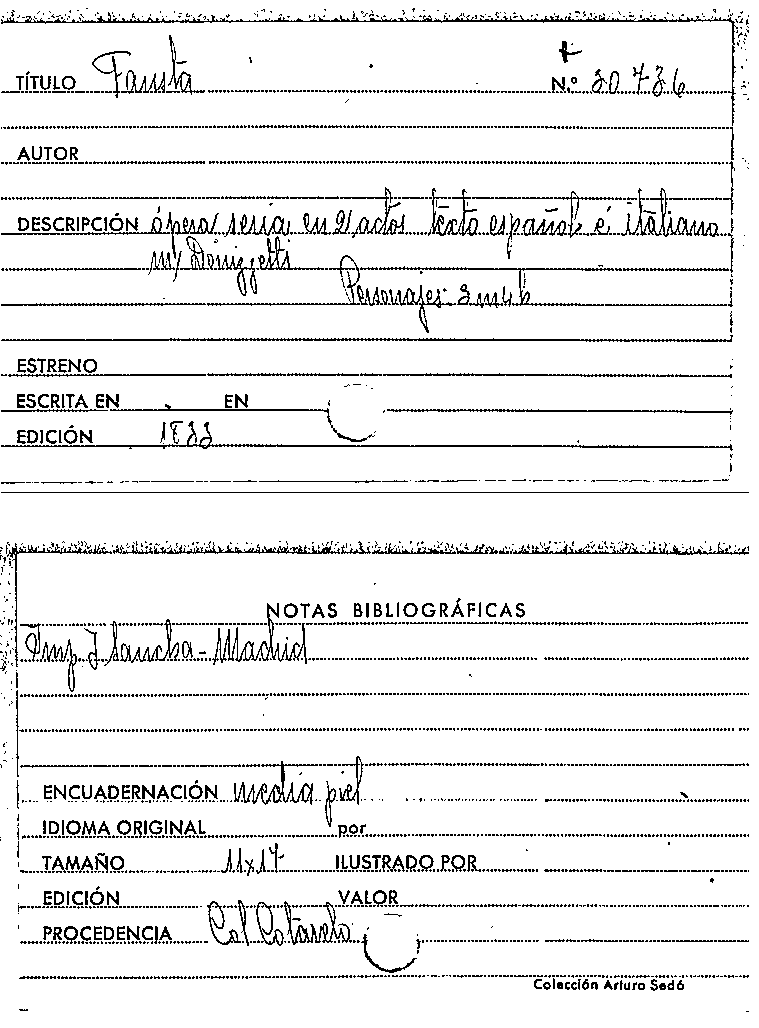 TÍTULO Fausta N.º 30436
AUTOR
DESCRIPCIÓN ópera seria en 2 actos texto español é italiano
m/ Donizzetti
Personajes: 3 m 4 h
ESTRENO
ESCRITA EN EN
EDICIÓN 1833
NOTAS BIBLIOGRÁFICAS
Imp. J Sancha - Madrid
ENCUADERNACIÓN media piel
IDIOMA ORIGINAL por
TAMAÑO 11x17 ILUSTRADO POR
EDICIÓN VALOR
PROCEDENCIA Col Cotarelo
Colección Arturo Sedó